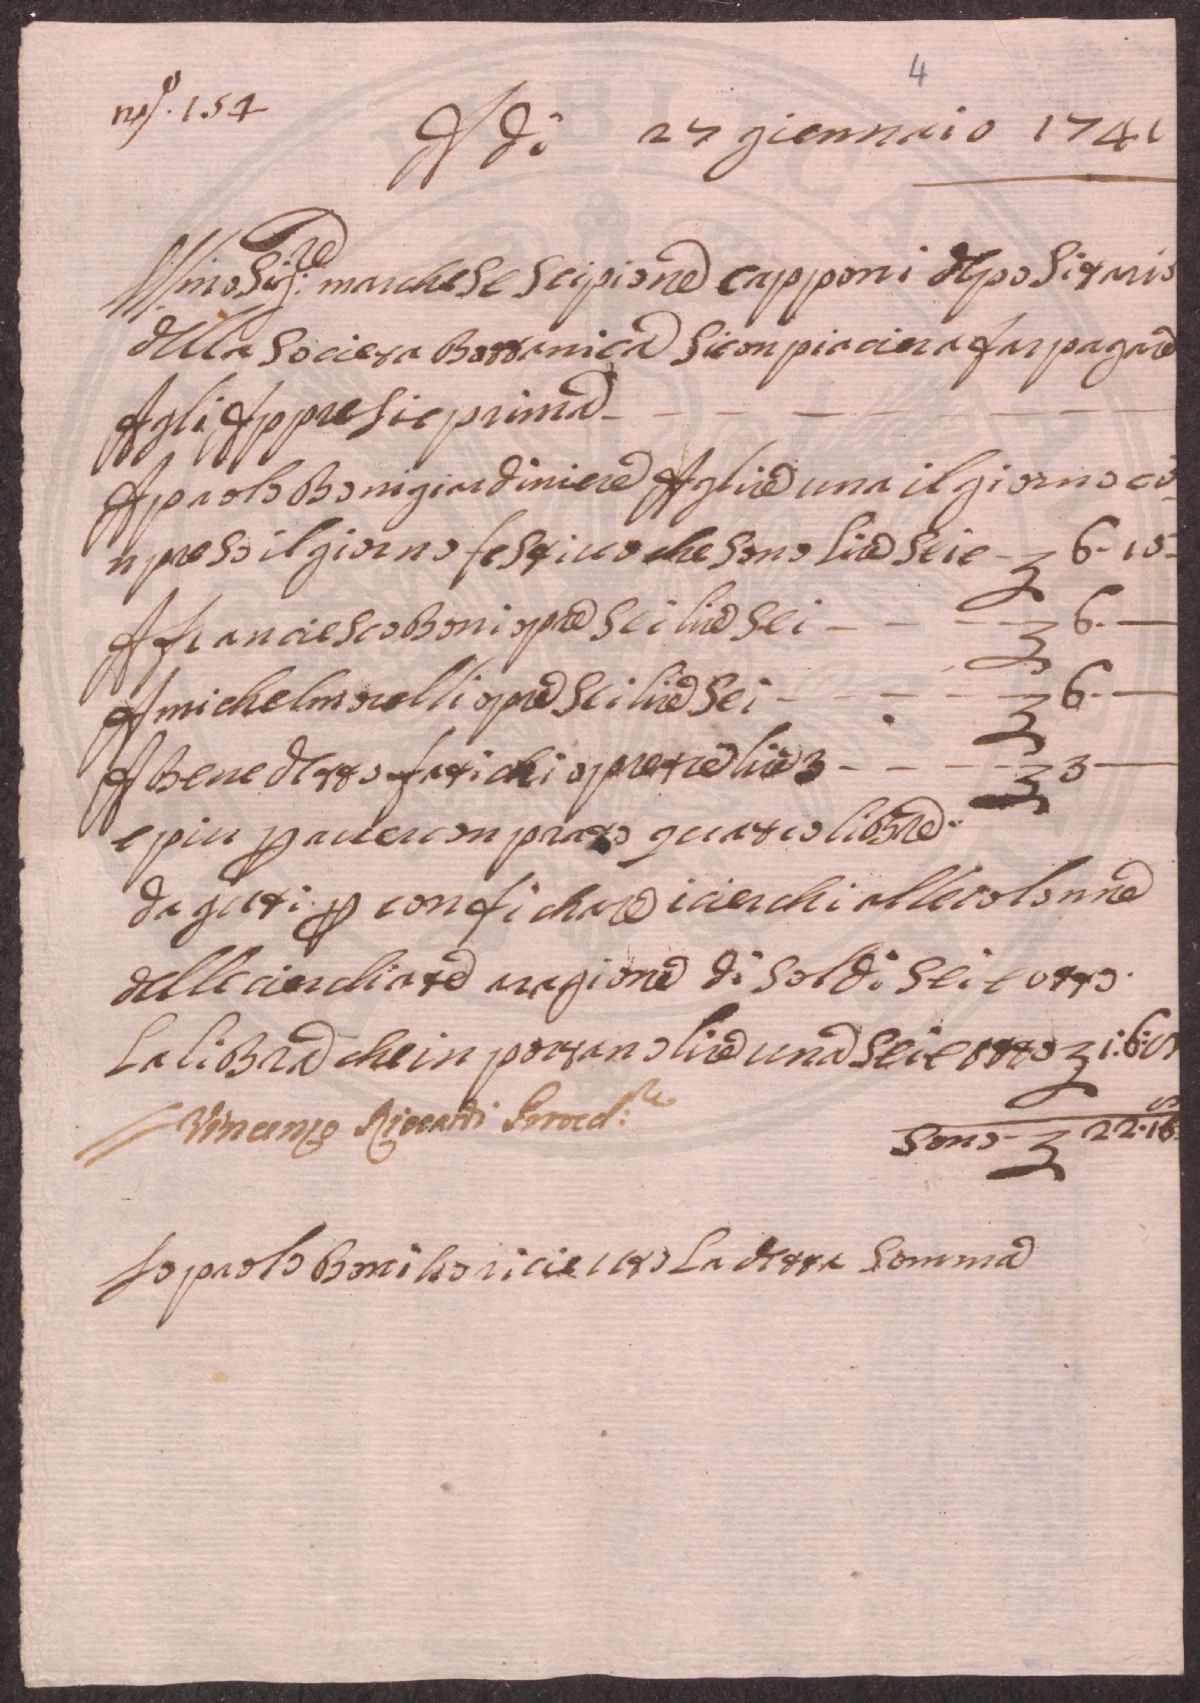 4
n.° 154
A di 27 giennaio 1741
Ill.mo Sig.re marchese Scipione capponi depositario
della Societa Bottanica Si conpiaciera far pagare
Agli Appresie prima
A paolo Boni giardiniere A lire una il giorno co
npreso il giorno festiuo che sono lire Seie 6. 10
A franciesco Boni opre Sei lire Sei 6. —
A michel morelli opre Sei lire Sei 6. —
A Benedetto fatichi opre tre lire 3 3 —
e piu p auer conprato quatro libre
da guti p confichare i cierchi alle colonne
delle cierchiate a ragione di Soldi Sei e otto
La liBra che in portano lire una Seie otto 1:6:8
Vincenzo Riccardi Proved:re
Sono 22.16
Io paolo Boni ho riceuto La detta Somma